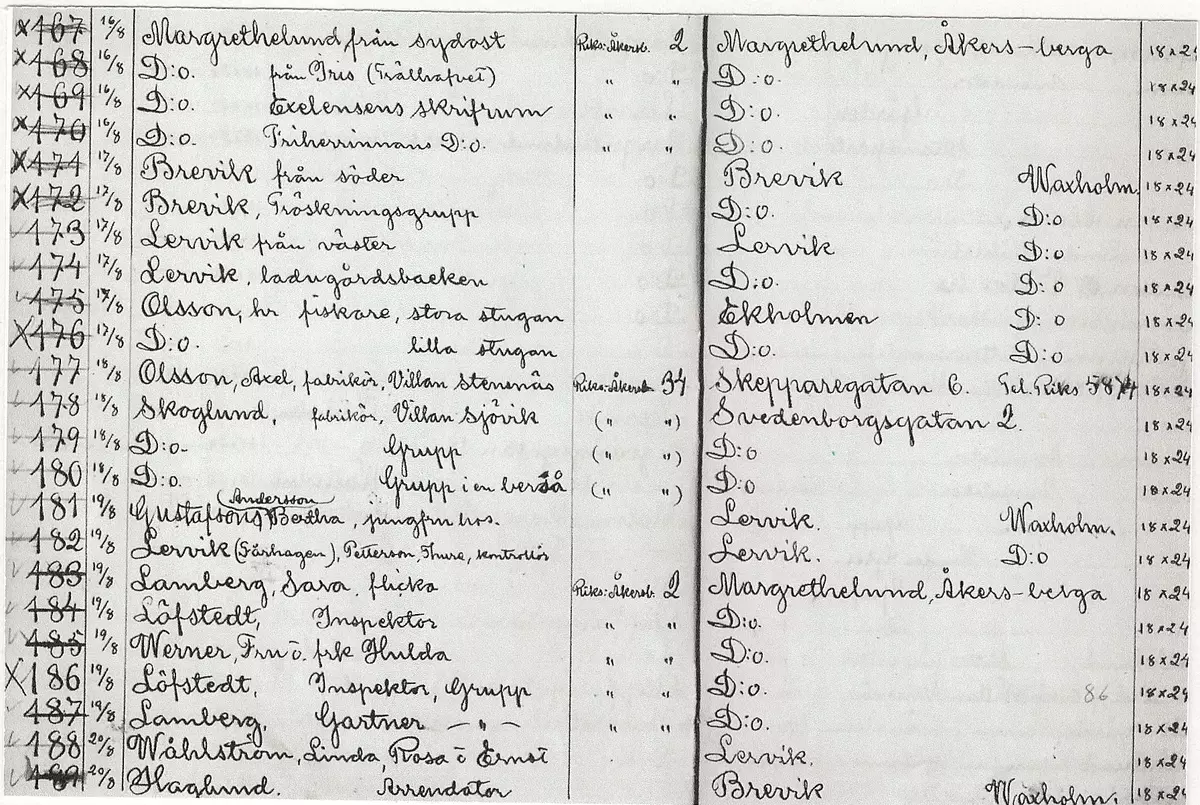 X 167 16/8 Margrethelund från sydost Riks: Åkersb. 2 Margrethelund, Åkers-berga 18x24
X 168 16/8 D:o. från Iris (Trälhafvet) " " D:o. 18x24
X 169 16/8 D:o. Exelensens skrifrum " " D:o. 18x24
X 170 16/8 D:o. Friherrinnans D:o. " " D:o. 18x24
X 171 17/8 Brevik från söder Brevik Waxholm. 18x24
X 172 17/8 Brevik, Tröskningsgrupp D:o. D:o 18x24
173 17/8 Lervik från väster Lervik D:o 18x24
174 17/8 Lervik, ladugårdsbacken D:o. D:o 18x24
175 17/8 Olsson, hr fiskare, stora stugan Ekholmen D:o 18x24
X 176 17/8 D:o. lilla stugan D:o. D:o 18x24
177 18/8 Olsson, Axel, fabrikör, Villan Stensnäs Riks: Åkersb. 34 Skepparegatan 6. Tel. Riks 18x24
178 18/8 Skoglund, fabrikör, Villan Sjövik (" ") Svedenborgsgatan 2. 18x24
179 18/8 D:o. Grupp (" ") D:o 18x24
180 18/8 D:o. Grupp i en berså (" ") D:o 18x24
181 19/8 Gustafsons (Andersson) Bertha, jungfru hos. Lervik. Waxholm. 18x24
182 19/8 Lervik (Fårhagen), Petterson, Thure, kontrollör Lervik. D:o 18x24
183 19/8 Lamberg, Sara, flicka Riks: Åkersb. 2 Margrethelund, Åkers-berga 18x24
184 19/8 Löfstedt, Inspektor " " D:o. 18x24
185 19/8 Werner, Fru o. frk Hulda " " D:o. 18x24
X 186 19/8 Löfstedt, Inspektor, Grupp " " D:o. 86 18x24
187 19/8 Lamberg, Gartner — " — " " D:o. 18x24
188 20/8 Wåhlström, Linda, Rosa o Ernst Lervik. 18x24
189 20/8 Haglund. Arrendator Brevik Waxholm. 18x24